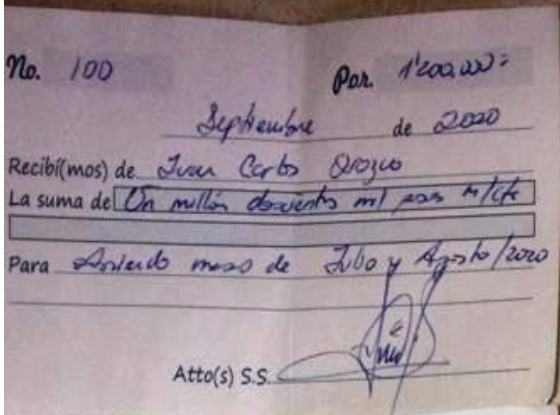 No. 100 Por. 1'200.000=
Septiembre de 2020
Recibí(mos) de Juan Carlos Orozco
La suma de Un millón doscientos mil pesos m/cte
Para Arriendo meses de Julio y Agosto/2020
Atto(s) S.S.